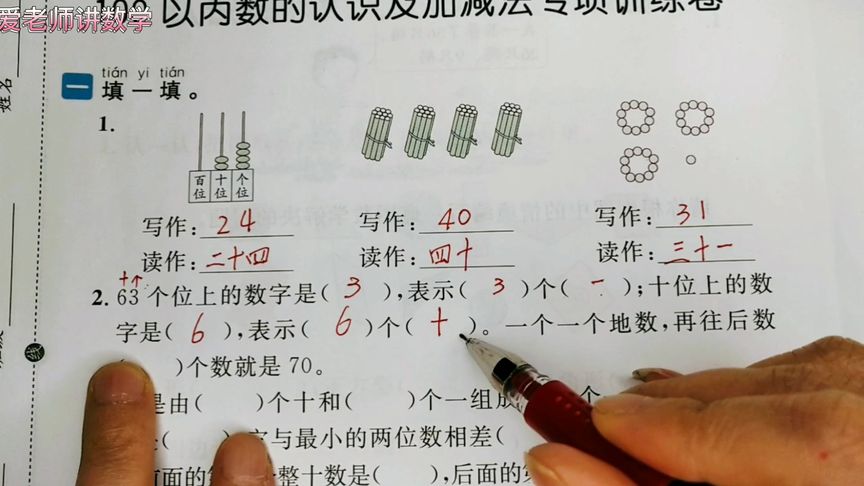 爱老师讲数学
以内数的认识及加减法专项训练卷
姓名
tián yi tián
一 填一填。
1.
百位 十位 个位
写作：24 写作：40 写作：31
读作：二十四 读作：四十 读作：三十一
十个
2. 63个位上的数字是（ 3 ），表示（ 3 ）个（ 一 ）；十位上的数
字是（ 6 ），表示（ 6 ）个（ 十 ）。一个一个地数，再往后数
）个数就是70。
是由（ ）个十和（ ）个一组成
与最小的两位数相差（
整十数是（ ），后面的
线